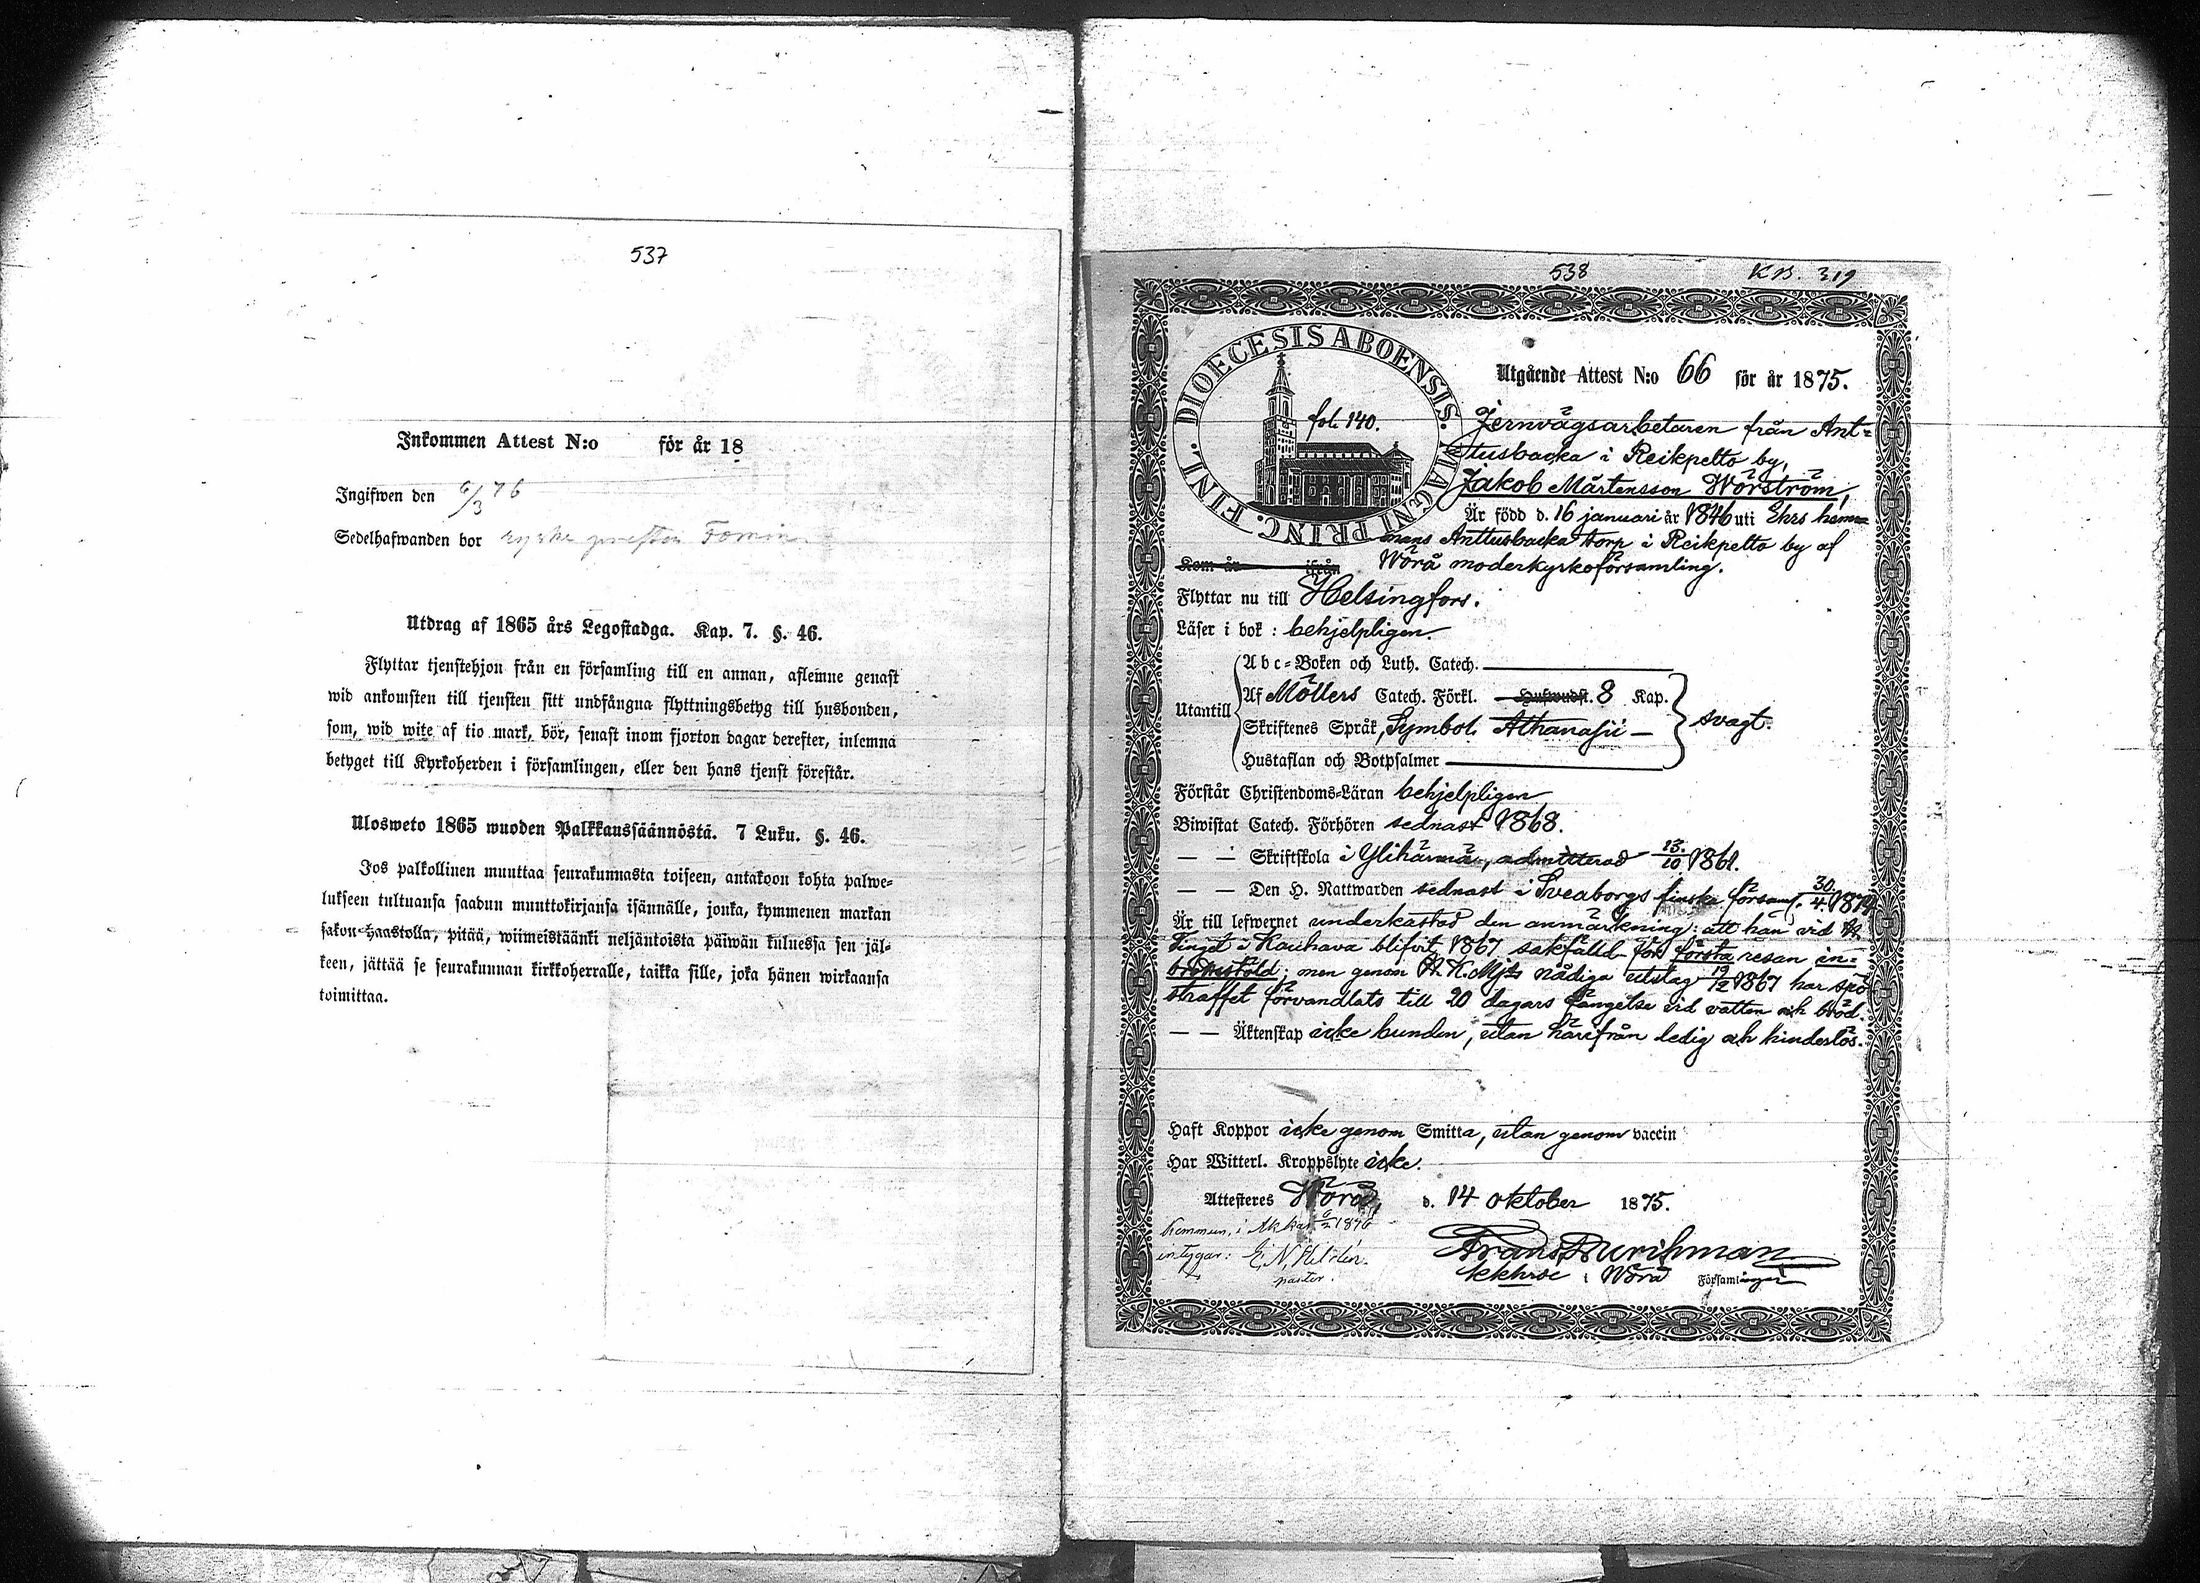 537
Inkommen Attest N:o för år 18
Ingifwen den 6/3 76
Sedelhafwanden bor ryske presten Fomin
Utdrag af 1865 års Legostadga. Kap. 7. §. 46.
Flyttar tjenstehjon från en församling till en annan, aflemne genast
wid ankomsten till tjensten sitt undfångna flyttningsbetyg till husbonden,
som, wid wite af tio mark, bör, senast inom fjorton dagar derefter, inlemna
betyget till Kyrkoherden i församlingen, eller den hans tjenst förestår.
Ulosweto 1865 wuoden Palkkaussäännöstä. 7 Luku. §. 46.
Jos palkollinen muuttaa seurakunnasta toiseen, antakoon kohta palwe-
lukseen tultuansa saadun muuttokirjansa isännälle, jonka, kymmenen markan
sakon haastolla, pitää, wiimeistäänki neljäntoista päiwän kuluessa sen jäl-
keen, jättää se seurakunnan kirkkoherralle, taikka sille, joka hänen wirkaansa
toimittaa.
538 K B. 319
DIOECESIS ABOENSIS. MAGNI PRINC. FINL.
fol. 140.
Utgående Attest N:o 66 för år 1875.
Jernvägsarbetaren från Ant-
tusbacka i Reikpelto by,
Jakob Mårtensson Wörström,
Är född d. 16 januari år 1846 uti Ehrs hem-
mans Anttusbacka torp i Reikpelto by af
Kom år ifrån Wörå moderkyrkoförsamling.
Flyttar nu till Helsingfors.
Läser i bok: behjelpligen.
Utantill
Abc-Boken och Luth. Catech.
Af Möllers Catech. Förkl. Hufwudst. 8 Kap.
Skriftenes Språk, Symbol. Athanasii —
Hustaflan och Botpsalmer
svagt.
Förstår Christendoms-Läran behjelpligen
Biwistat Catech. Förhören sednast 1868.
— — Skriftskola i Ylihärmä, admitterad 13/10 1861.
— — Den H. Nattwarden sednast i Sveaborgs finska församl. 30/4 1874
Är till lefwernet underkastad den anmärkning: att han vid
Tinget i Kauhava blifvit 1867 sakfälld för första resan in-
brottsstöld; men genom H. K. Mjts nådiga utslag 19/2 1867 har spö-
straffet förvandlats till 20 dagars fängelse vid vatten och bröd.
— — Äktenskap icke bunden, utan härifrån ledig och hinderslös.
Haft Koppor icke genom Smitta, utan genom vaccin
Har Witterl. Kroppslyte icke.
Attesteres Wörå, d. 14 oktober 1875.
Kommun. i Akkas 6/2 1876
intygar: E. N.
pastor.
Frans Durchman
kkhrde i Wörå Församlingar